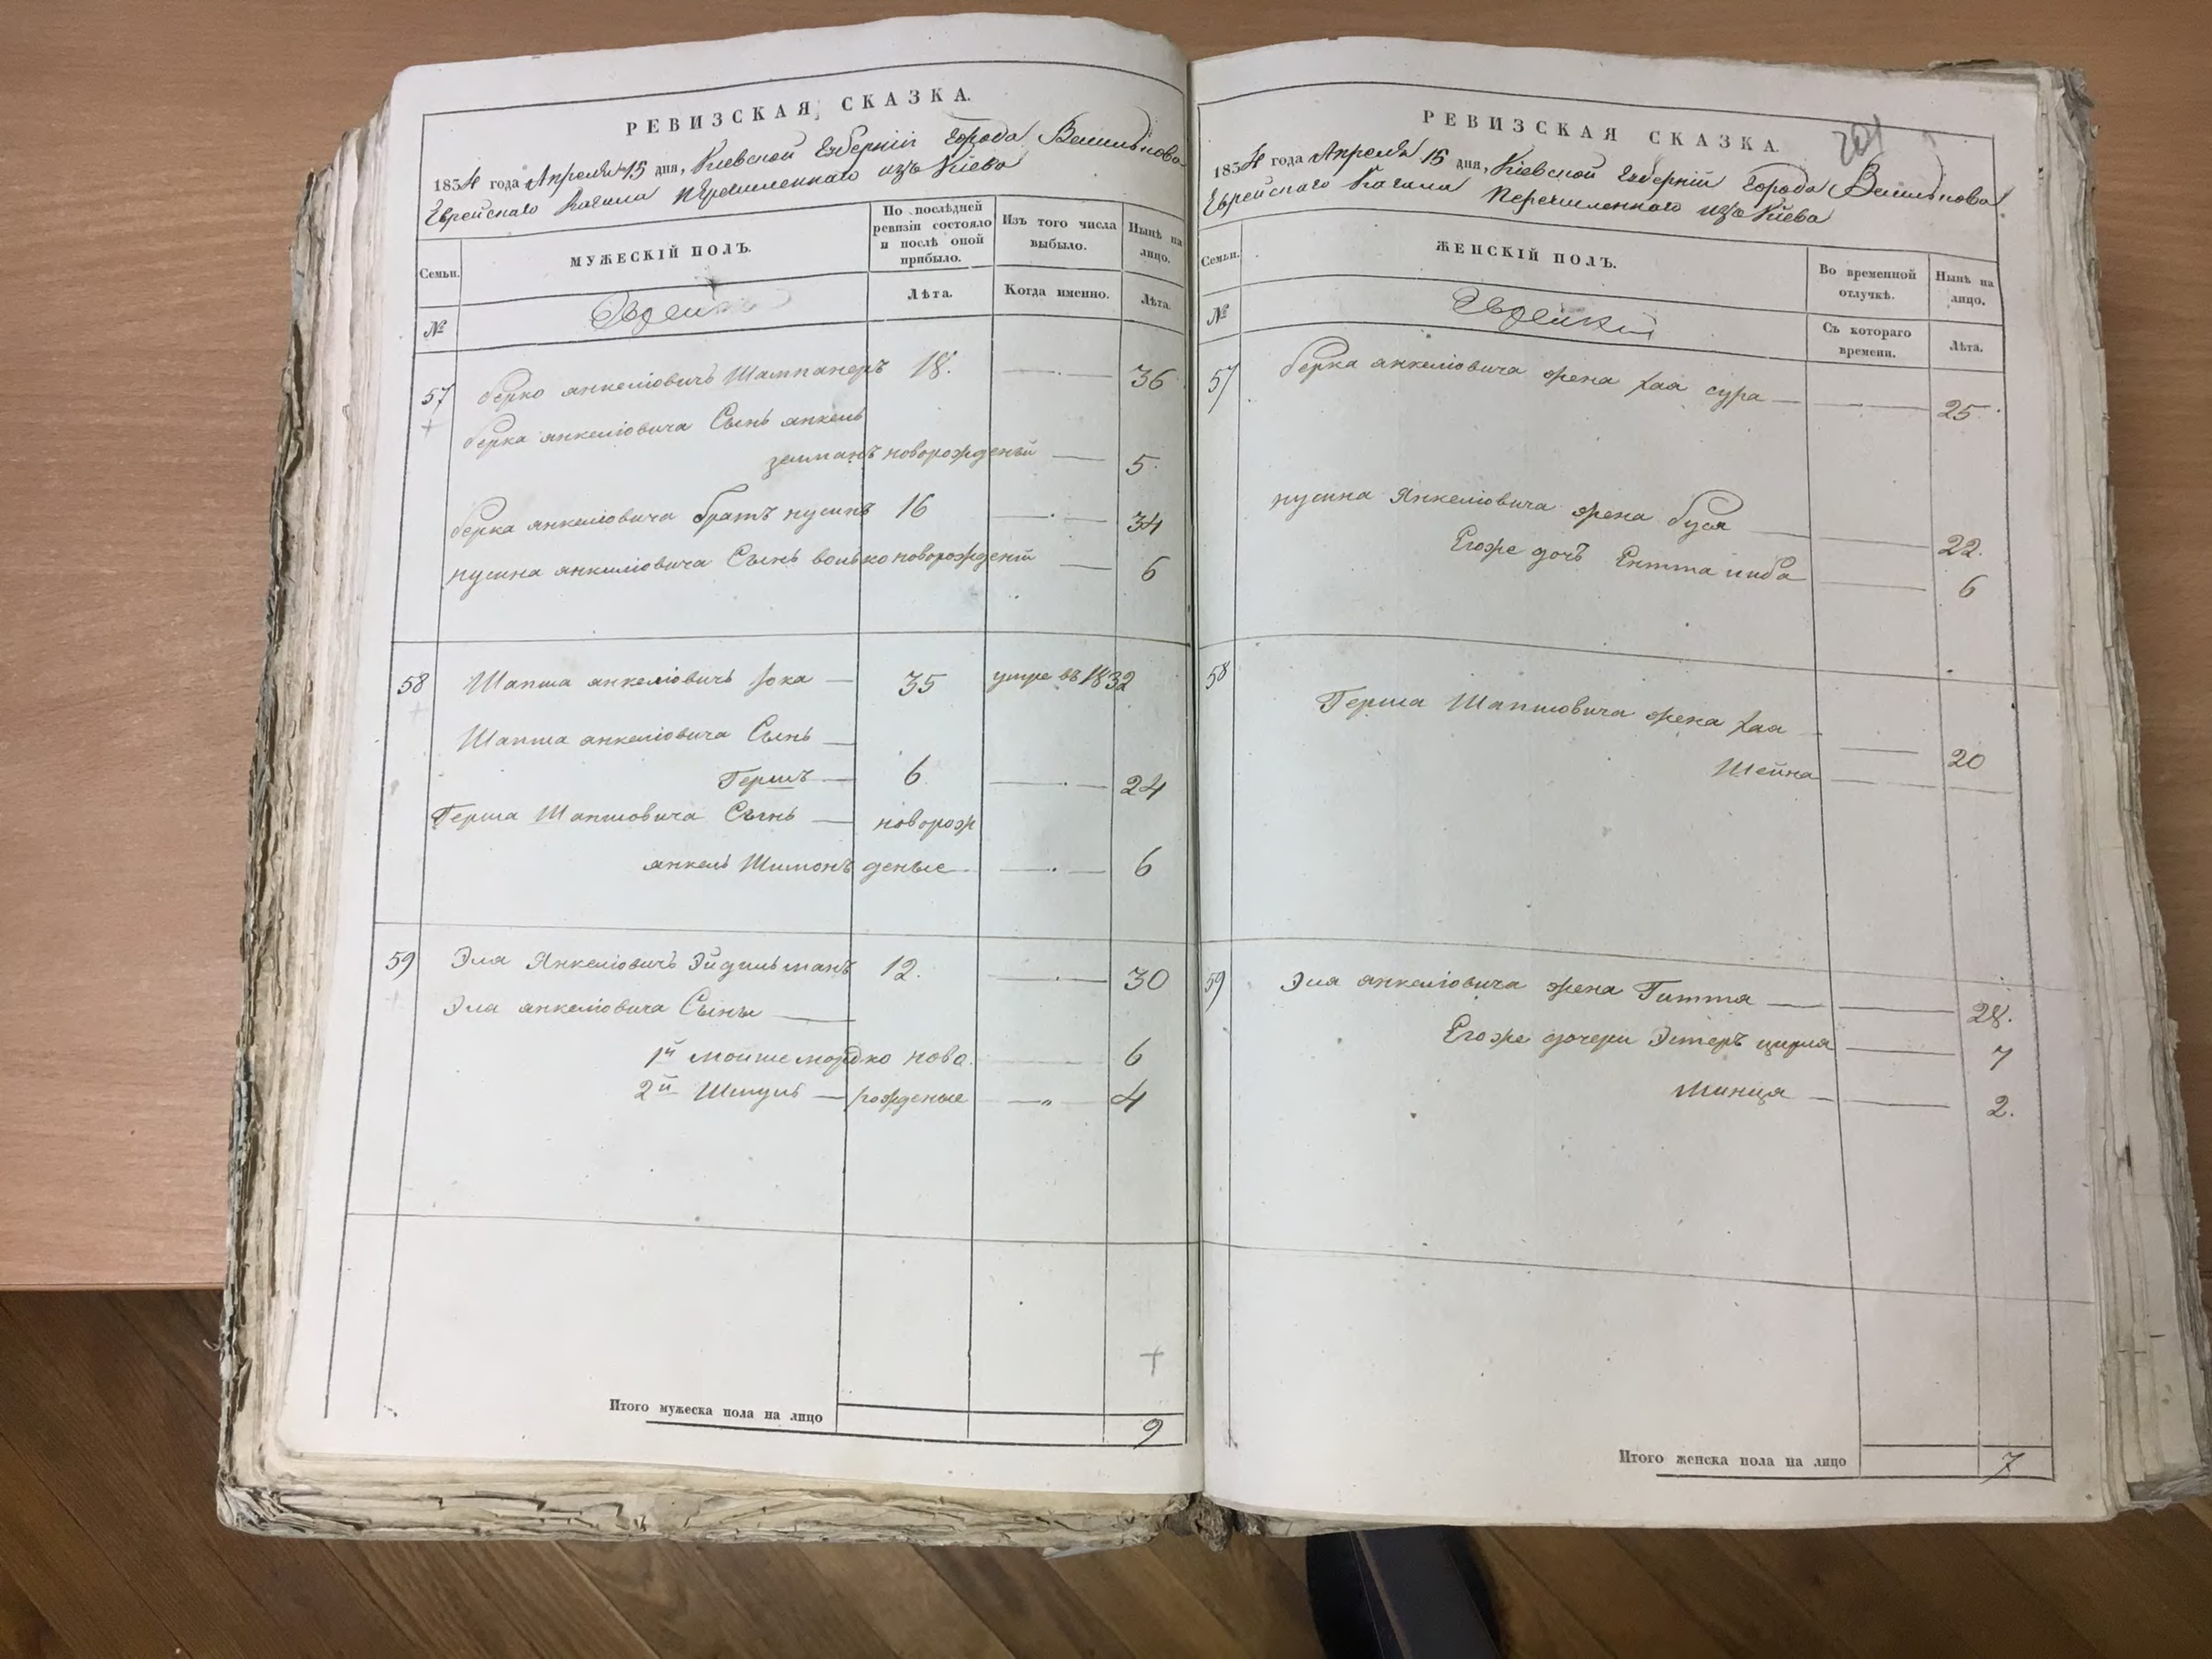 РЕВИЗСКАЯ СКАЗКА.
1834 года Апреля 15 дня, Киевской Губерніи Города Василькова
Еврейскаго Кагала перечисленнаго изъ Кіева
Семьи.
МУЖЕСКІЙ ПОЛЪ.
По послѣдней ревизіи состояло и послѣ оной прибыло.
Изъ того числа выбыло.
Нынѣ на лицо.
№
Евреи
Лѣта.
Когда именно.
Лѣта.
57 берко анкеліовичъ Шампанеръ 18. 36
берка анкеліовича Сынъ анкель
зелманъ новорожденый 5.
берка анкеліовича братъ нусинъ 16 34
нусина анкеліовича Сынъ волько новорожденій 6
58 Шапша анкеліовичъ 35 умре въ 1832
Шапша анкеліовича Сынъ
Гершъ 6 24
Герша Шапшовича Сынъ новорож
анкель Шимонъ деные 6
59 Эла Янкеліовичъ Эйдильманъ 12. 30
Эла анкеліовича Сыны
1й мошко мордко ново 6
2й Шмуль рожденые 4
Итого мужеска пола на лицо 9
РЕВИЗСКАЯ СКАЗКА.
1834 года Апреля 15 дня, Кіевской Губерніи Города Василькова
Еврейскаго Кагала перечисленнаго изъ Кіева
Семьи.
ЖЕНСКІЙ ПОЛЪ.
Во временной отлучкѣ.
Нынѣ на лицо.
№
Еврейки
Съ котораго времени.
Лѣта.
57 берка анкеліовича жена хая сура 25
нусина Янкеліовича жена буся 22.
Егоже дочъ Ентта 6
58
Герша Шапшовича жена хая
Шейна 20
59 Эля анкеліовича жена Гиття 28.
Егоже дочери Эстеръ цирля 7
Шинця 2.
Итого женска пола на лицо 7